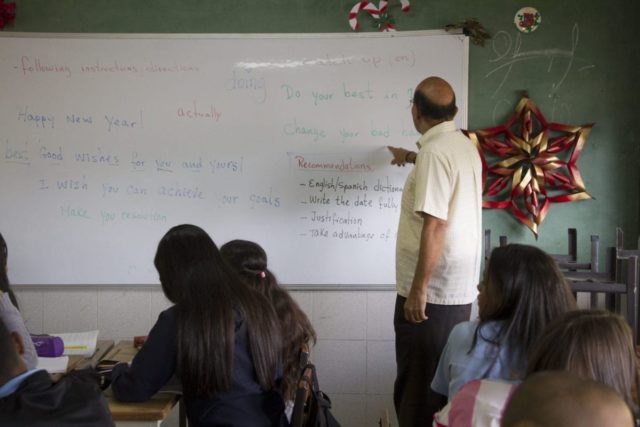 - Following instructions, directions
Happy New Year!
actually
best Good wishes for you and yours!
I wish you can achieve our goals
Make you resolution
doing
up (on)
Do your best in
Change your bad
Recommendations
- English/Spanish dictiona
- Write the date fully
- Justification
- Take advantage of